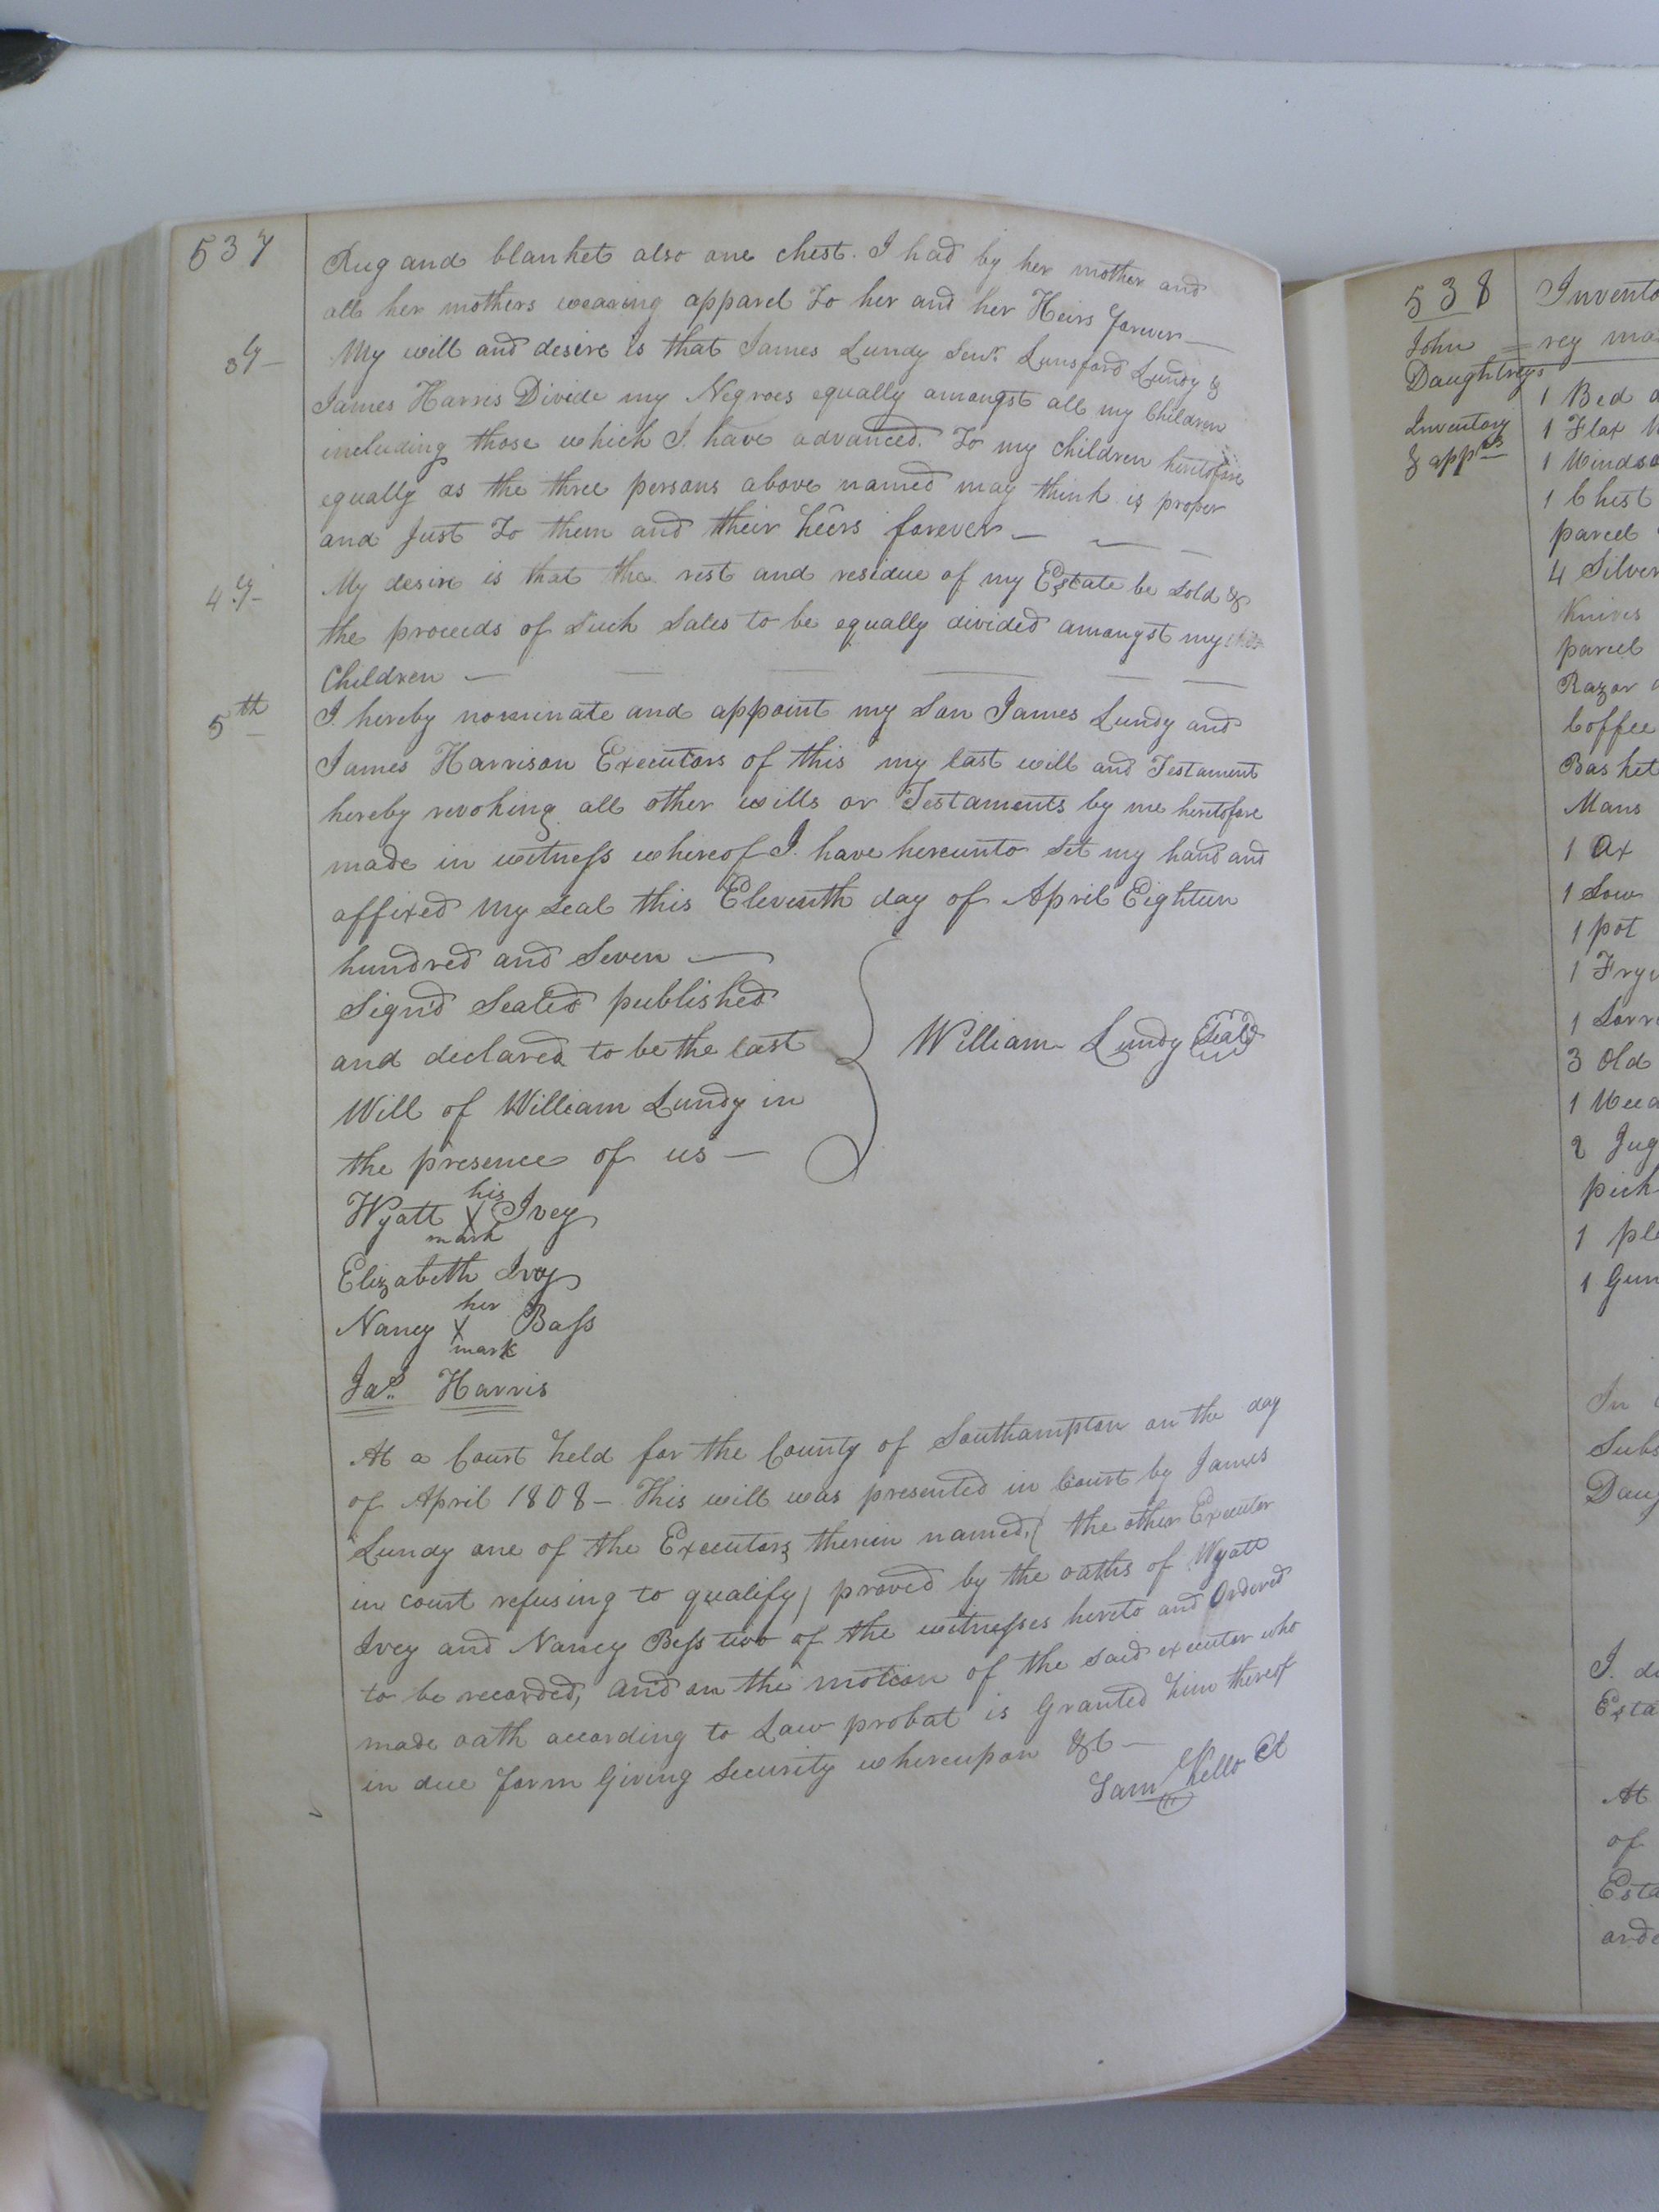 537
Rug and blanket also one chest. I had by her mother and
all her mothers wearing apparel To her and her Heirs forever—
3ly— My will and desire is that James Lundy Senr. Lunsford Lundy &
James Harris Divide my Negroes equally amongst all my Children
including those which I have advanced To my children heretofore
equally as the three persons above named may think is proper
and Just To them and their heirs forever— — —
4ly— My desire is that the rest and residue of my Estate be sold &
the proceeds of Such Sales to be equally divided amongst my
Children —
5th I hereby nominate and appoint my Son James Lundy and
James Harrison Executors of this my last will and Testament
hereby revoking all other wills or Testaments by me heretofore
made in witness whereof I have hereunto Set my hand and
affixed My Seal this Eleventh day of April Eighteen
hundred and Seven —
Sign'd Sealed published
and declared to be the last
Will of William Lundy in
the presence of us —
William Lundy Seal
his
Wyatt X Ivey
mark
Elizabeth Ivey
her
Nancy X Bass
mark
Jas. Harris
At a Court held for the County of Southampton on the day
of April 1808— This will was presented in Court by James
Lundy one of the Executors therein named, (the other Executor
in court refusing to qualify) proved by the oaths of Wyatt
Ivey and Nancy Bess two of the witnesses hereto and Ordered
to be recorded, and on the motion of the said executor who
made oath according to Law probat is Granted him thereof
in due form Giving Security whereupon &C—
Sam Kello Cl
538
John
Daughtreys
Inventory
& appmt
Invento
rey ma
1 Bed
1 Flax
1 Windso
1 Chest
parcel
4 Silver
Knives
parcel
Razor
Coffee
Basket
Mans
1 Ax
1 Sow
1 pot
1
1
3 Old
1
2 Jug
1
1 Gun
In
Subs
Daug
I
Esta
At
of
Esta
orde